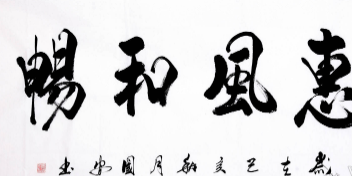 惠風和暢
歲在己亥秋月國書